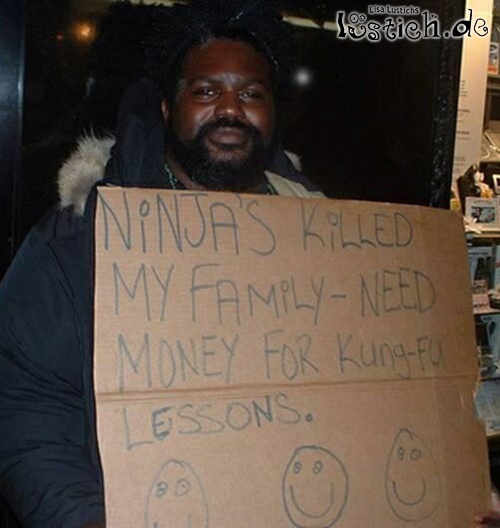 Lisa Lustichs
lustich.de
NINJA'S KILLED
MY FAMILY - NEED
MONEY FOR KUNG-FU
LESSONS.